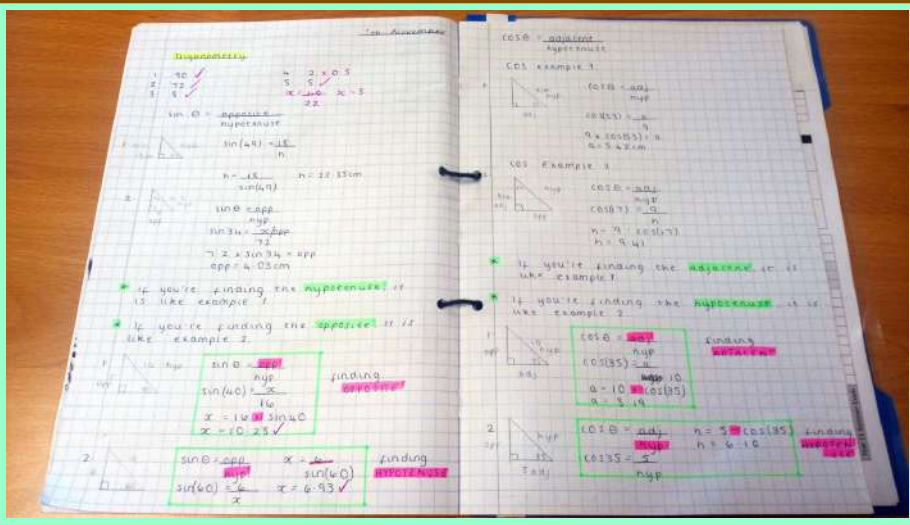 Trigonometry
1 90
2 72
3 8
4 2 x 0.5
5 5
x = 40 x = 5
22
sin θ = opposite
hypotenuse
sin(49) = 18
h
h = 18 h = 23.85cm
sin(49)
2
sin θ = opp
hyp
sin 34 = x/opp
7.2
7.2 x sin 34 = opp
opp = 4.03cm
* If you're finding the hypotenuse, it
is like example 1.
* If you're finding the opposite, it is
like example 2.
1.
hyp
sin θ = opp
hyp
sin(40) = x
16
x = 16 x sin 40
x = 10.28
finding
OPPOSITE
2.
sin θ = opp
hyp
sin(60) = 6
x
x = 6
sin(60)
x = 6.93
finding
HYPOTENUSE
cos θ = adjacent
hypotenuse
cos example 1.
hyp
adj
cos θ = adj
hyp
cos(53) = a
9
9 x cos(53) = a
a = 5.42cm
cos Example 2
hyp
adj
opp
cos θ = adj
hyp
cos(17) = 9
h
h = 9 ÷ cos(17)
h = 9.41
* If you're finding the adjacent, it is
like example 1.
* If you're finding the hypotenuse, it is
like example 2
1.
opp
10
hyp
35
adj
cos θ = adj
hyp
cos(35) = a
10
a = 10 x cos(35)
a = 8.19
finding
ADJACENT
2.
opp
hyp
35
5 adj
cos θ = adj
hyp
cos 35 = 5
hyp
h = 5 ÷ cos(35)
h = 6.10
finding
HYPOTENUSE